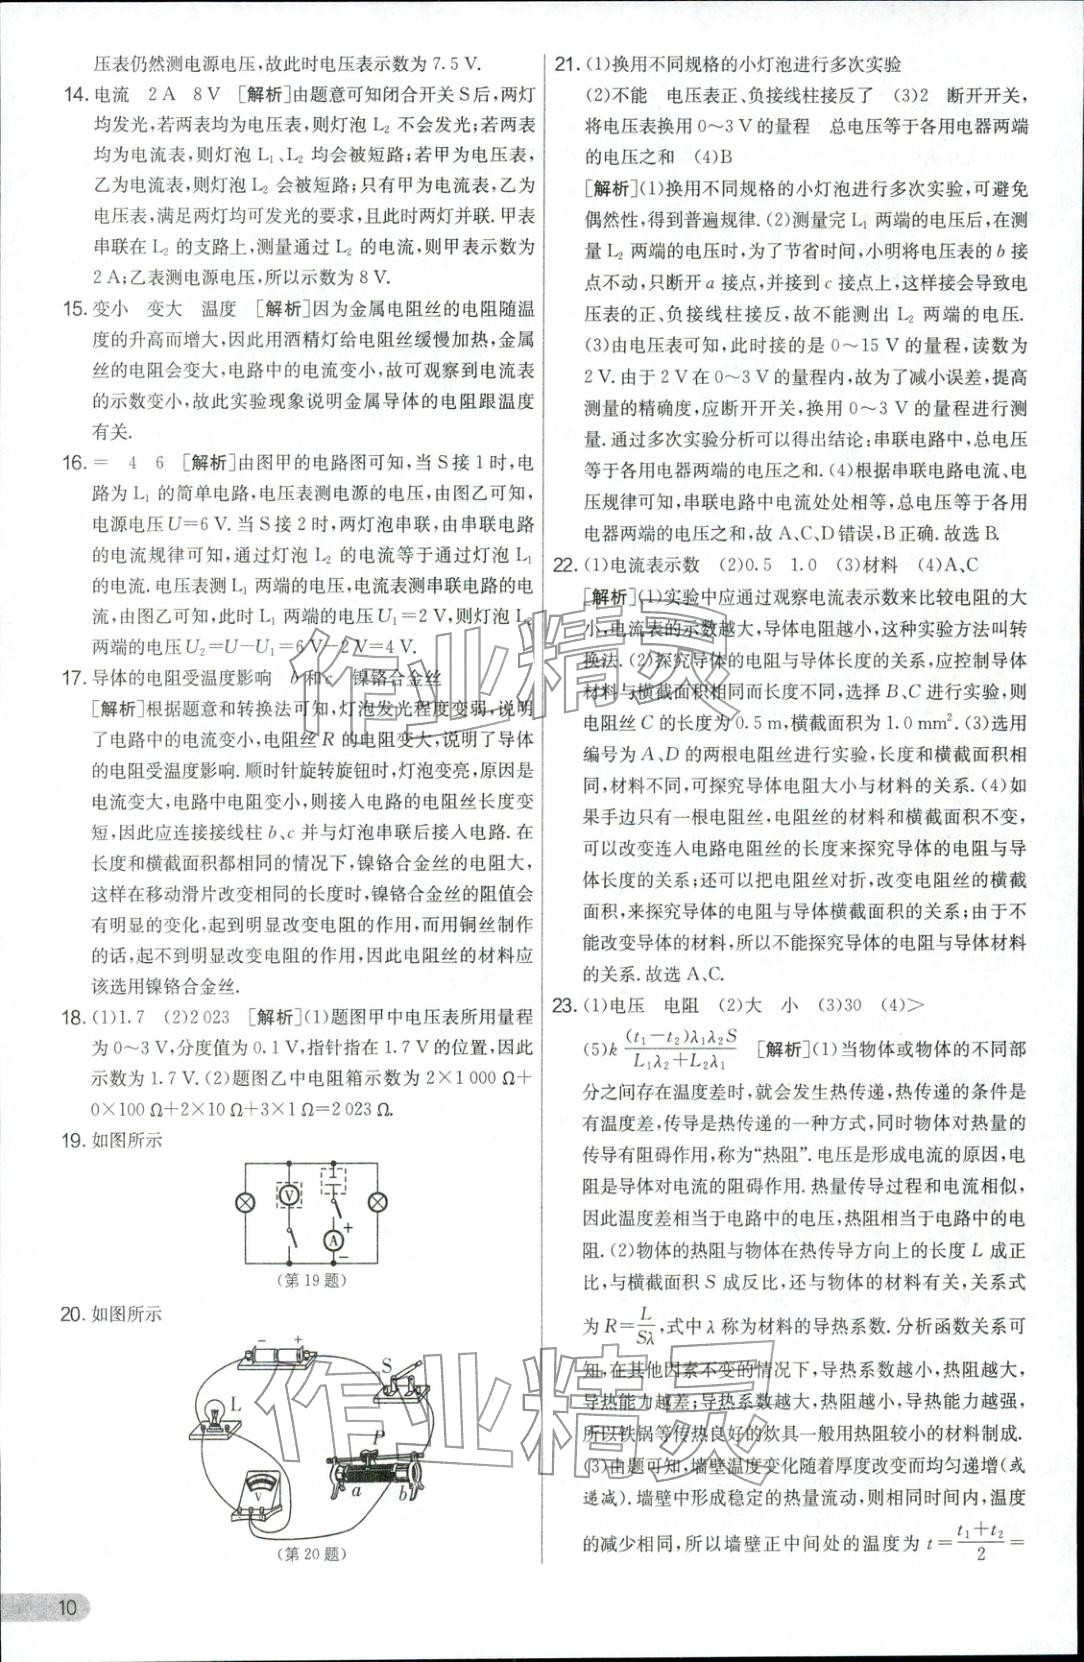 压表仍然测电源电压,故此时电压表示数为 7.5 V.
14. 电流　2 A　8 V　[解析]由题意可知闭合开关 S 后,两灯
均发光,若两表均为电压表,则灯泡 L₂ 不会发光;若两表
均为电流表,则灯泡 L₁、L₂ 均会被短路;若甲为电压表,
乙为电流表,则灯泡 L₂ 会被短路;只有甲为电流表,乙为
电压表,满足两灯均可发光的要求,且此时两灯并联. 甲表
串联在 L₂ 的支路上,测量通过 L₂ 的电流,则甲表示数为
2 A;乙表测电源电压,所以示数为 8 V.
15. 变小　变大　温度　[解析]因为金属电阻丝的电阻随温
度的升高而增大,因此用酒精灯给电阻丝缓慢加热,金属
丝的电阻会变大,电路中的电流变小,故可观察到电流表
的示数变小,故此实验现象说明金属导体的电阻跟温度
有关.
16. =　4　6　[解析]由图甲的电路图可知,当 S 接 1 时,电
路为 L₁ 的简单电路,电压表测电源的电压,由图乙可知,
电源电压 U=6 V. 当 S 接 2 时,两灯泡串联,由串联电路
的电流规律可知,通过灯泡 L₂ 的电流等于通过灯泡 L₁
的电流. 电压表测 L₁ 两端的电压,电流表测串联电路的电
流,由图乙可知,此时 L₁ 两端的电压 U₁=2 V,则灯泡 L₂
两端的电压 U₂=U−U₁=6 V−2 V=4 V.
17. 导体的电阻受温度影响　b 和 c　镍铬合金丝
[解析]根据题意和转换法可知,灯泡发光程度变弱,说明
了电路中的电流变小,电阻丝 R 的电阻变大,说明了导体
的电阻受温度影响. 顺时针旋转旋钮时,灯泡变亮,原因是
电流变大,电路中电阻变小,则接入电路的电阻丝长度变
短,因此应连接接线柱 b、c 并与灯泡串联后接入电路. 在
长度和横截面积都相同的情况下,镍铬合金丝的电阻大,
这样在移动滑片改变相同的长度时,镍铬合金丝的阻值会
有明显的变化,起到明显改变电阻的作用,而用铜丝制作
的话,起不到明显改变电阻的作用,因此电阻丝的材料应
该选用镍铬合金丝.
18. (1)1.7　(2)2 023　[解析](1)题图甲中电压表所用量程
为 0～3 V,分度值为 0.1 V,指针指在 1.7 V 的位置,因此
示数为 1.7 V. (2)题图乙中电阻箱示数为 2×1 000 Ω+
0×100 Ω+2×10 Ω+3×1 Ω=2 023 Ω.
19. 如图所示
V
A
+
−
(第 19 题)
20. 如图所示
−
+
S
L
P
V
a
b
(第 20 题)
10
21. (1)换用不同规格的小灯泡进行多次实验
(2)不能　电压表正、负接线柱接反了　(3)2　断开开关,
将电压表换用 0～3 V 的量程　总电压等于各用电器两端
的电压之和　(4)B
[解析](1)换用不同规格的小灯泡进行多次实验,可避免
偶然性,得到普遍规律. (2)测量完 L₁ 两端的电压后,在测
量 L₂ 两端的电压时,为了节省时间,小明将电压表的 b 接
点不动,只断开 a 接点,并接到 c 接点上,这样接会导致电
压表的正、负接线柱接反,故不能测出 L₂ 两端的电压.
(3)由电压表可知,此时接的是 0～15 V 的量程,读数为
2 V. 由于 2 V 在 0～3 V 的量程内,故为了减小误差,提高
测量的精确度,应断开开关,换用 0～3 V 的量程进行测
量. 通过多次实验分析可以得出结论:串联电路中,总电压
等于各用电器两端的电压之和. (4)根据串联电路电流、电
压规律可知,串联电路中电流处处相等,总电压等于各用
电器两端的电压之和,故 A、C、D 错误,B 正确. 故选 B.
22. (1)电流表示数　(2)0.5　1.0　(3)材料　(4)A、C
[解析](1)实验中应通过观察电流表示数来比较电阻的大
小,电流表的示数越大,导体电阻越小,这种实验方法叫转
换法. (2)探究导体的电阻与导体长度的关系,应控制导体
材料与横截面积相同而长度不同,选择 B、C 进行实验,则
电阻丝 C 的长度为 0.5 m,横截面积为 1.0 mm². (3)选用
编号为 A、D 的两根电阻丝进行实验,长度和横截面积相
同,材料不同,可探究导体电阻大小与材料的关系. (4)如
果手边只有一根电阻丝,电阻丝的材料和横截面积不变,
可以改变连入电路电阻丝的长度来探究导体的电阻与导
体长度的关系;还可以把电阻丝对折,改变电阻丝的横截
面积,来探究导体的电阻与导体横截面积的关系;由于不
能改变导体的材料,所以不能探究导体的电阻与导体材料
的关系. 故选 A、C.
23. (1)电压　电阻　(2)大　小　(3)30　(4)>
(5)k (t₁−t₂)λ₁λ₂S / (L₁λ₂+L₂λ₁)　[解析](1)当物体或物体的不同部
分之间存在温度差时,就会发生热传递,热传递的条件是
有温度差,传导是热传递的一种方式,同时物体对热量的
传导有阻碍作用,称为“热阻”. 电压是形成电流的原因,电
阻是导体对电流的阻碍作用. 热量传导过程和电流相似,
因此温度差相当于电路中的电压,热阻相当于电路中的电
阻. (2)物体的热阻与物体在热传导方向上的长度 L 成正
比,与横截面积 S 成反比,还与物体的材料有关,关系式
为 R=L/(Sλ),式中 λ 称为材料的导热系数. 分析函数关系可
知,在其他因素不变的情况下,导热系数越小,热阻越大,
导热能力越差;导热系数越大,热阻越小,导热能力越强,
所以铁锅等传热良好的炊具一般用热阻较小的材料制成.
(3)由题可知,墙壁温度变化随着厚度改变而均匀递增(或
递减). 墙壁中形成稳定的热量流动,则相同时间内,温度
的减少相同,所以墙壁正中间处的温度为 t=(t₁+t₂)/2=
作业精灵
作业精灵